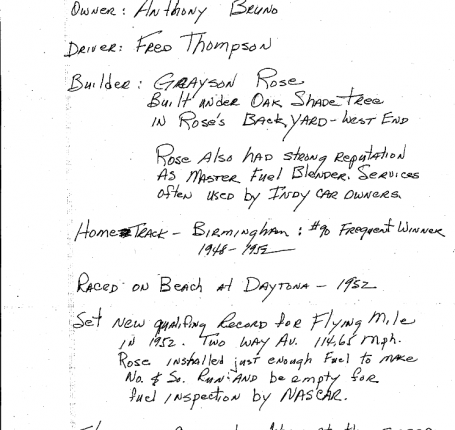 OWNER: ANTHONY BRUNO
DRIVER: FRED THOMPSON
Builder: GRAYSON ROSE
Built under OAK SHADE TREE
IN ROSE'S BACK YARD - WEST END
ROSE ALSO HAD STRONG REPUTATION
AS MASTER FUEL BLENDER. SERVICES
OFTEN USED BY INDY CAR OWNERS.
HOME TRACK - BIRMINGHAM: #90 FREQUENT WINNER
1948-1952
RACED ON BEACH AT DAYTONA - 1952
SET NEW qualifing RECORD FOR FLYING MILE
IN 1952. TWO WAY AV. 114.65 MPH.
ROSE INSTALLED just ENOUGH FUEL TO MAKE
NO. & SO. RUN AND be EMPTY FOR
fuel INSPECTION by NASCAR.